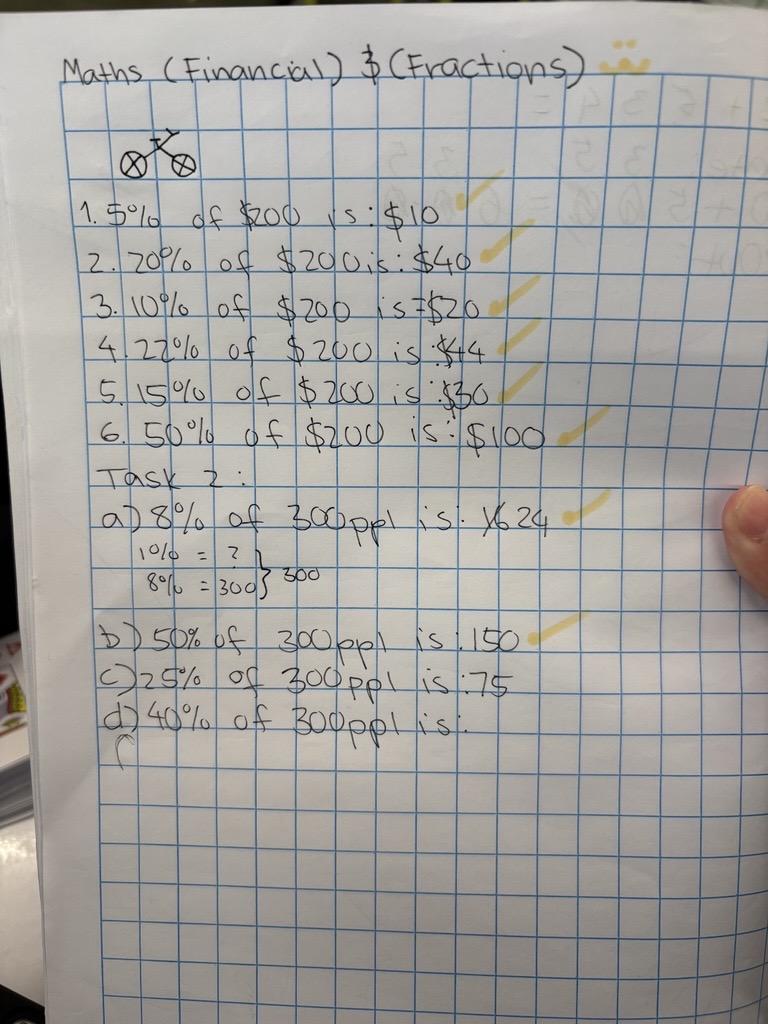 Maths (Financial) $ (Fractions)
1. 5% of $200 is: $10
2. 20% of $200 is: $40
3. 10% of $200 is = $20
4. 22% of $200 is: $44
5. 15% of $200 is: $30
6. 50% of $200 is: $100
Task 2:
a) 8% of 300ppl is: 24
1% = ?
8% = 300 } 300
b) 50% of 300ppl is: 150
c) 25% of 300ppl is: 75
d) 40% of 300ppl is: